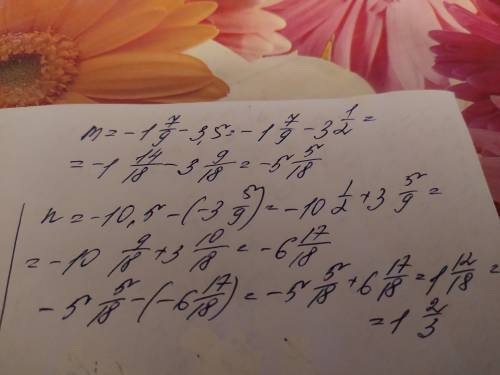 m = -1 7/9 - 3,5 = -1 7/9 - 3 1/2 =
= -1 14/18 - 3 9/18 = -5 5/18
n = -10,5 - (-3 5/9) = -10 1/2 + 3 5/9 =
= -10 9/18 + 3 10/18 = -6 17/18
-5 5/18 - (-6 17/18) = -5 5/18 + 6 17/18 = 1 12/18 =
= 1 2/3